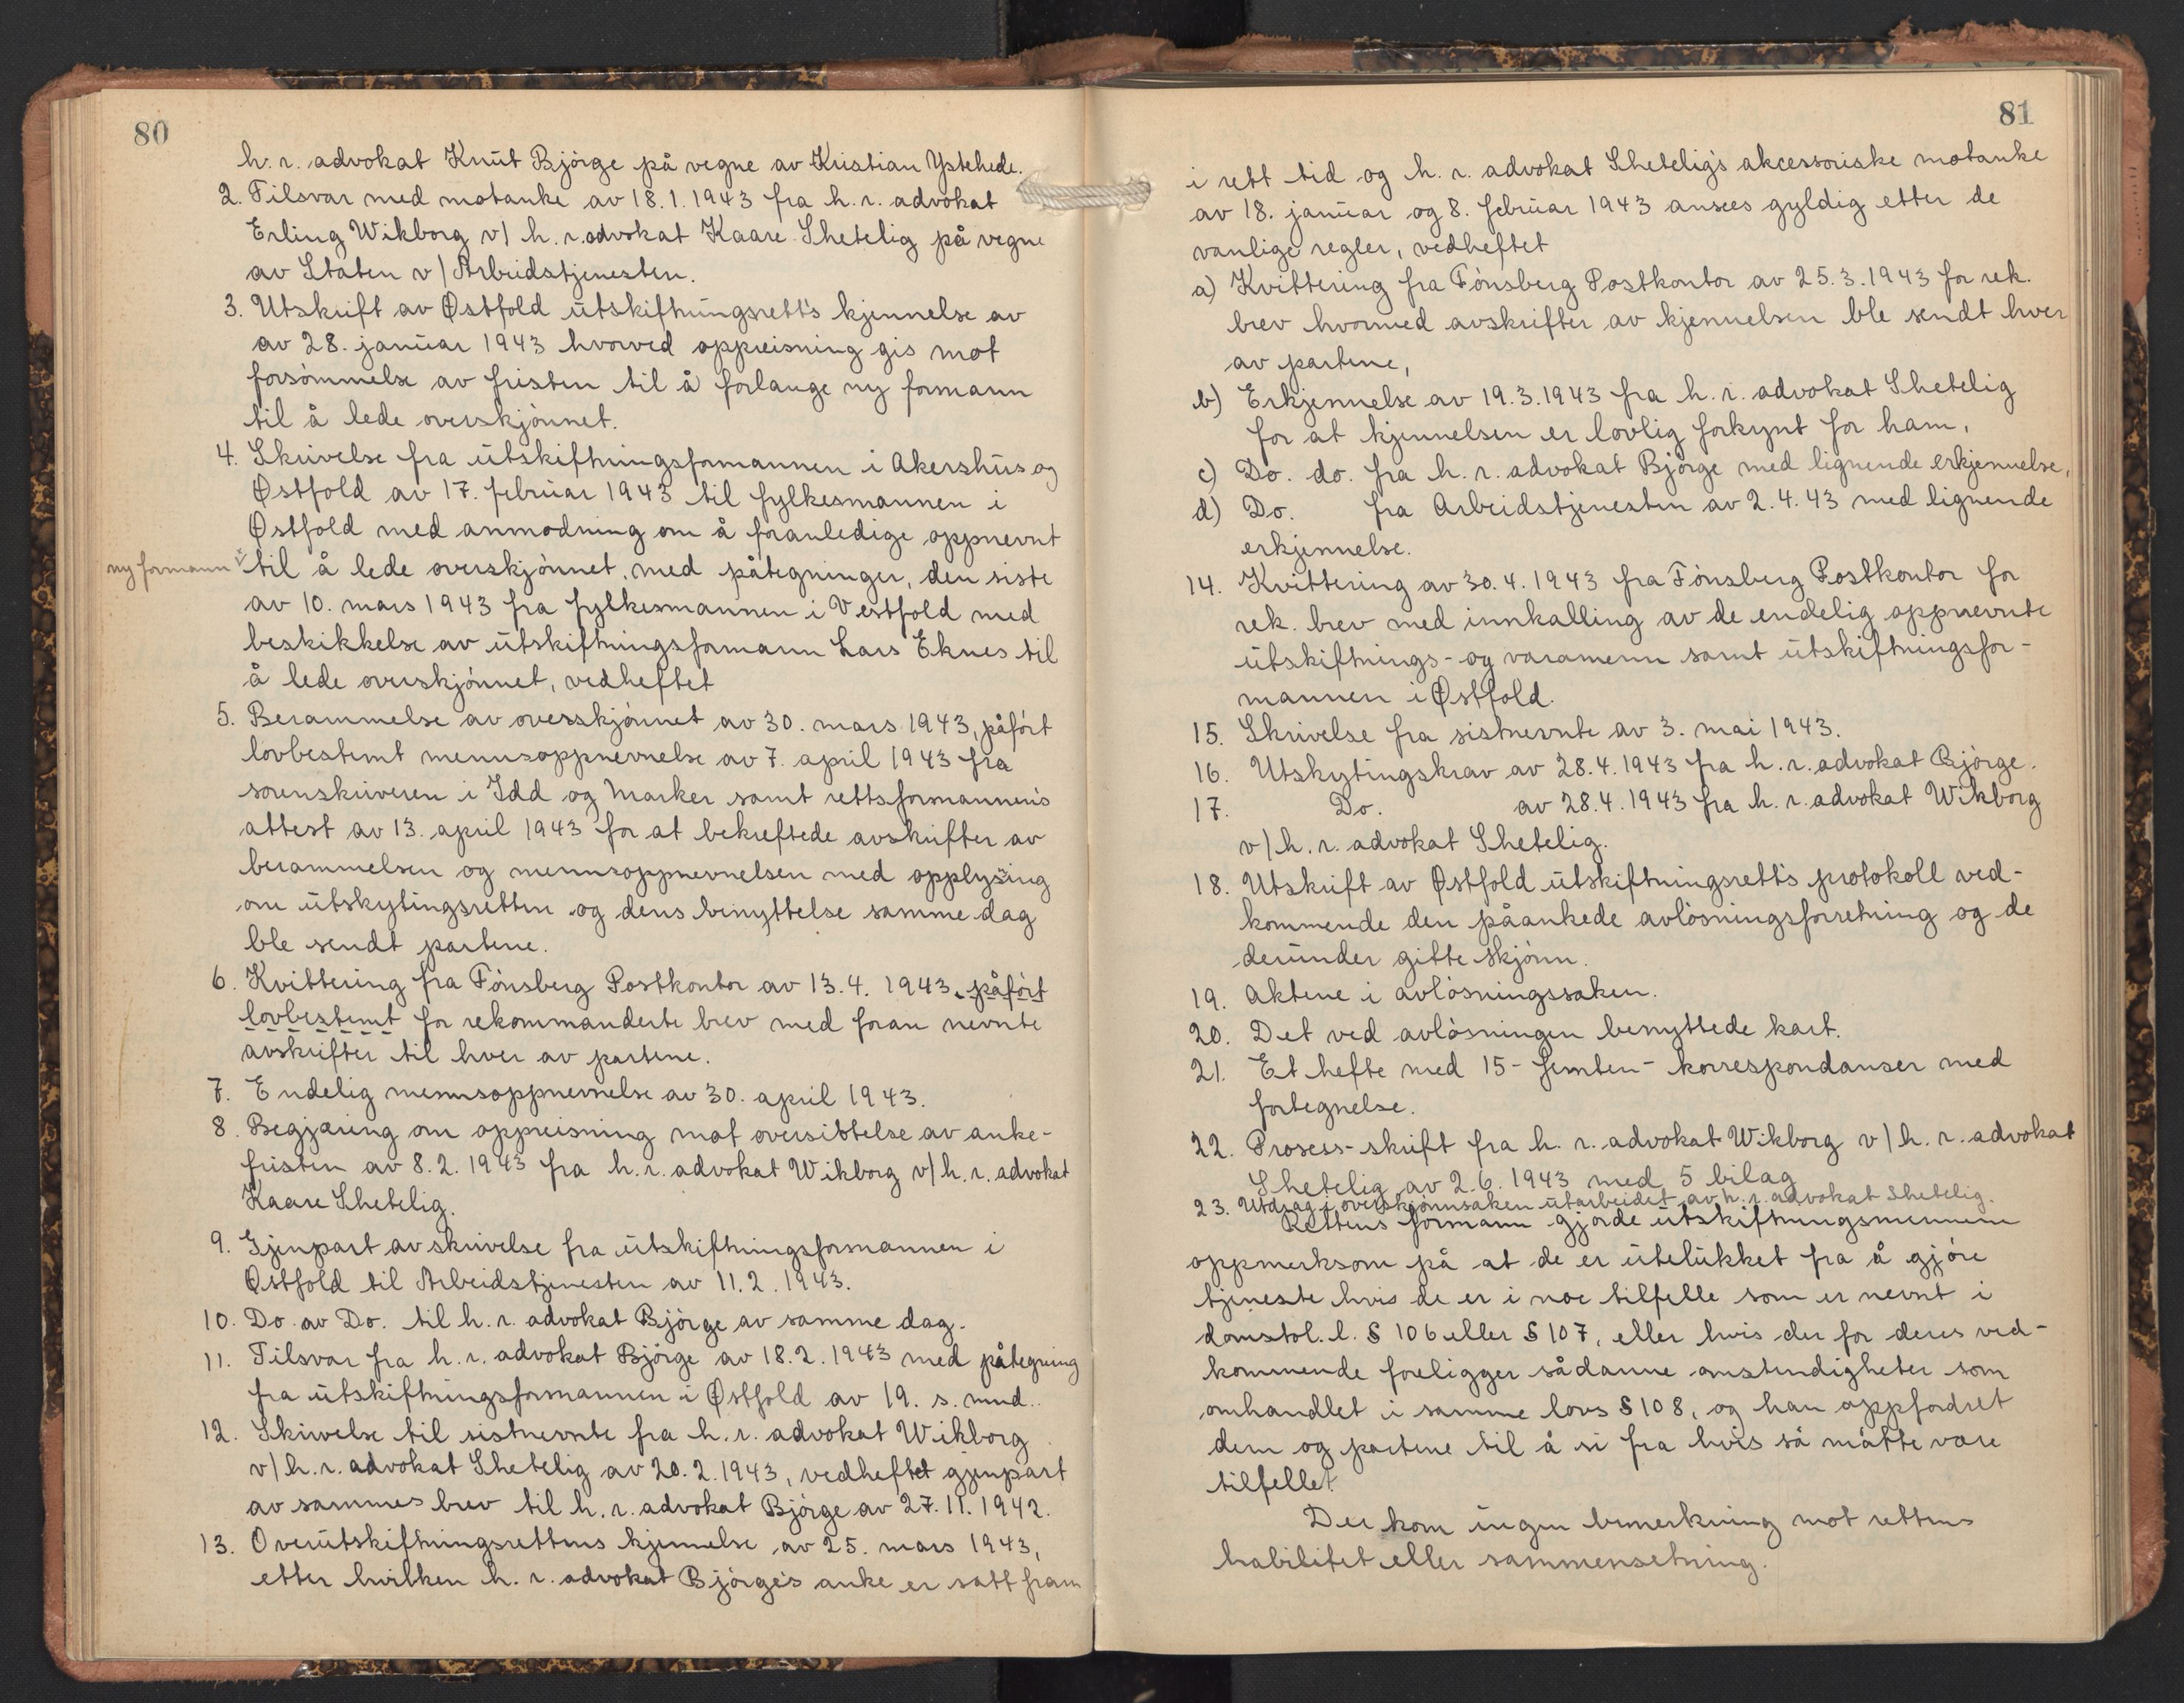 80
h. r. advokat Knut Bjørge på vegne av Kristian Ystehede.
2. Tilsvar med motanke av 18.1.1943 fra h. r. advokat
Erling Wikborg v/ h. r. advokat Kaare Shetelig på vegne
av Staten v/ Arbeidstjenesten.
3. Utskrift av Østfold utskiftningsrett's kjennelse av
av 28. januar 1943 hvorved oppreisning gis mot
forsømmelse av fristen til å forlange ny formann
til å lede overskjønnet.
4. Skrivelse fra utskiftningsformannen i Akershus og
Østfold av 17. februar 1943 til fylkesmannen i
Østfold med anmodning om å foranledige oppnevnt
ny formann til å lede overskjønnet, med påtegninger, den siste
av 10. mars 1943 fra fylkesmannen i Vestfold med
beskikkelse av utskiftningsformann Lars Eknes til
å lede overskjønnet, vedheftet
5. Berammelse av overskjønnet av 30. mars 1943, påført
lovbestemt mennsoppnevnelse av 7. april 1943 fra
sorenskriveren i Idd og Marker samt rettsformannens
attest av 13. april 1943 for at bekreftede avskrifter av
berammelsen og mennsoppnevnelsen med opplysing
om utskytingsretten og dens benyttelse samme dag
ble sendt partene.
6. Kvittering fra Tønsberg Postkontor av 13.4. 1943, påført
lovbestemt for rekommanderte brev med foran nevnte
avskrifter til hver av partene.
7. Endelig mennsoppnevnelse av 30. april 1943.
8. Begjæring om oppreisning mot oversittelse av anke-
fristen av 8.2. 1943 fra h. r. advokat Wikborg v/ h. r. advokat
Kaare Shetelig.
9. Gjenpart av skrivelse fra utskiftningsformannen i
Østfold til Arbeidstjenesten av 11.2. 1943.
10. Do. av Do. til h. r. advokat Bjørge av samme dag.
11. Tilsvar fra h. r. advokat Bjørge av 18.2. 1943 med påtegning
fra utskiftningsformannen i Østfold av 19. s. mnd..
12. Skrivelse til sistnevnte fra h. r. advokat Wikborg
v/ h. r. advokat Shetelig av 20.2. 1943, vedheftet gjenpart
av sammes brev til h. r. advokat Bjørge av 27.11.1942.
13. Overutskiftningsrettens kjennelse av 25. mars 1943,
etter hvilken h. r. advokat Bjørge's anke er satt fram
81
i rett tid og h. r. advokat Shetelig's akcessoriske motanke
av 18. januar og 8. februar 1943 ansees gyldig etter de
vanlige regler, vedheftet
a) Kvittering fra Tønsberg Postkontor av 25.3.1943 for rek.
brev hvormed avskrifter av kjennelsen ble sendt hver
av partene,
b) Erkjennelse av 19.3.1943 fra h. r. advokat Shetelig
for at kjennelsen er lovlig forkynt for ham,
c) Do. do. fra h. r. advokat Bjørge med lignende erkjennelse,
d) Do. fra Arbeidstjenesten av 2.4.43 med lignende
erkjennelse.
14. Kvittering av 30.4.1943 fra Tønsberg Postkontor for
rek. brev med innkalling av de endelig oppnevnte
utskiftnings- og varamenn samt utskiftningsfor-
mannen i Østfold.
15. Skrivelse fra sistnevnte av 3. mai 1943.
16. Utskytingskrav av 28.4.1943 fra h. r. advokat Bjørge.
17. Do. av 28.4.1943 fra h. r. advokat Wikborg
v/ h. r. advokat Shetelig.
18. Utskrift av Østfold utskiftningsrett's protokoll ved-
kommende den påankede avløsningsforretning og de
derunder gitte skjønn.
19. Aktene i avløsningssaken.
20. Det ved avløsningen benyttede kart.
21. Et hefte med 15- femten- korrespondanser med
fortegnelse.
22. Prosess-skrift fra h. r. advokat Wikborg v/ h. r. advokat
Shetelig av 2.6.1943 med 5 bilag
23. Utdrag i overskjønnsaken utarbeidet av h. r. advokat Shetelig.
Rettens formann gjorde utskiftningsmennene
oppmerksom på at de er utelukket fra å gjøre
tjeneste hvis de er i noe tilfelle som er nevnt i
domstol. l. § 106 eller § 107, eller hvis der for deres ved-
kommende foreligger sådanne omstendigheter som
omhandlet i samme lovs § 108, og han oppfordret
dem og partene til å si fra hvis så måtte være
tilfellet.
Der kom ingen bemerkning mot rettens
habilitet eller sammensetning.